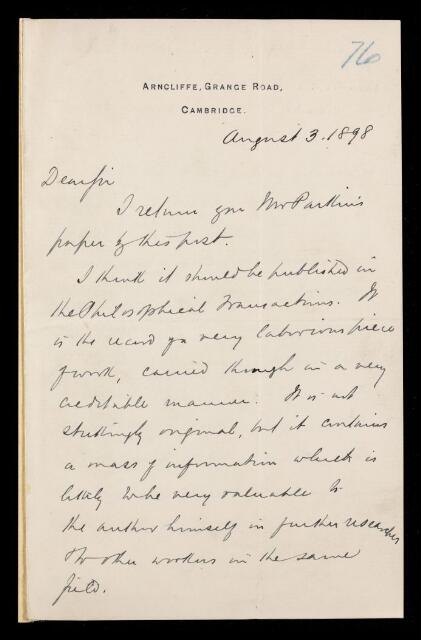 76
ARNCLIFFE, GRANGE ROAD,
CAMBRIDGE.
August 3. 1898
Dear Sir
I return you Mr Parkin's
paper by this post.
I think it should be published in
the Philosophical Transactions. It
is the record of a very laborious piece
of work, carried through in a very
creditable manner. It is not
strikingly original, but it contains
a mass of information which is
likely to be very valuable to
the author himself in further researches
& to other workers in the same
field.